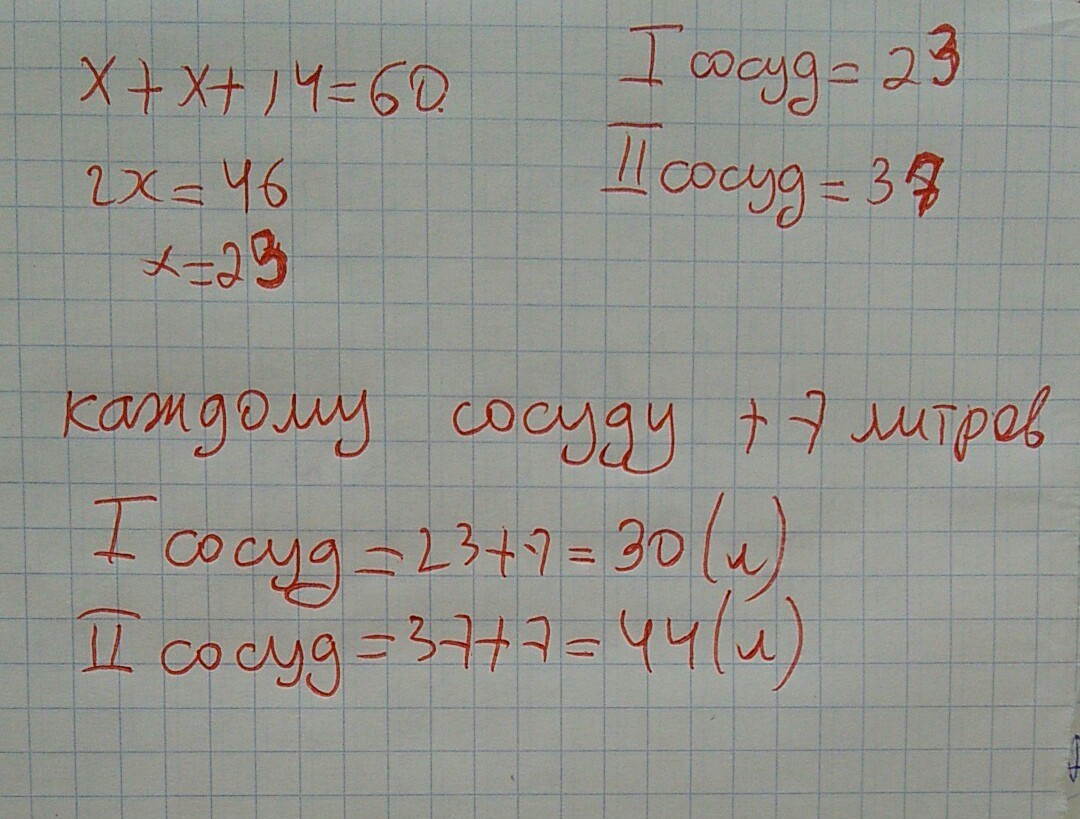 x+x+14=60
2x=46
x=23
I сосуд=23
II сосуд=37
каждому сосуду +7 литров
I сосуд=23+7=30(л)
II сосуд=37+7=44(л)